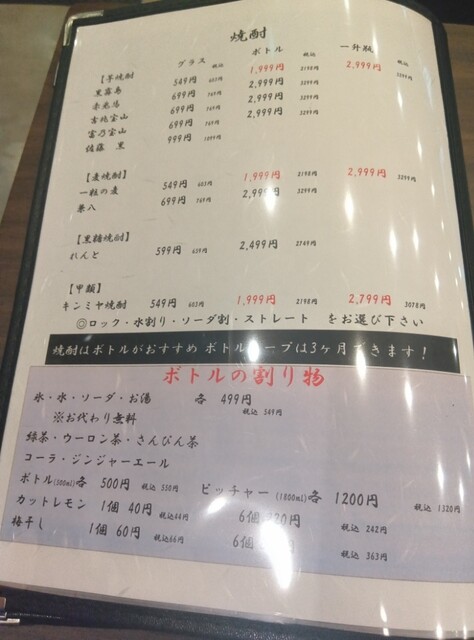 焼酎
グラス 税込 ボトル 税込 一升瓶 税込
【芋焼酎】
黒霧島 549円 603円 1,999円 2198円 2,999円 3299円
赤兎馬 699円 769円 2,999円 3299円
吉兆宝山 699円 769円 2,999円 3299円
富乃宝山 699円 769円 2,999円 3299円
佐藤 黒 999円 1099円
【麦焼酎】
一粒の麦 549円 603円 1,999円 2198円 2,999円 3299円
兼八 699円 769円 2,999円 3299円
【黒糖焼酎】
れんと 599円 659円 2,499円 2749円
【甲類】
キンミヤ焼酎 549円 603円 1,999円 2198円 2,799円 3078円
◎ロック・水割り・ソーダ割・ストレート をお選び下さい
焼酎はボトルがおすすめ ボトルキープは3ヶ月できます!
ボトルの割り物
氷・水・ソーダ・お湯 各 499円
※お代わり無料 税込 549円
緑茶・ウーロン茶・さんぴん茶
コーラ・ジンジャーエール
ボトル(500ml)各 500円 税込 550円 ピッチャー(1800ml)各 1200円 税込 1320円
カットレモン 1個 40円 税込44円 6個 20円 税込 242円
梅干し 1個 60円 税込66円 6個 税込 363円